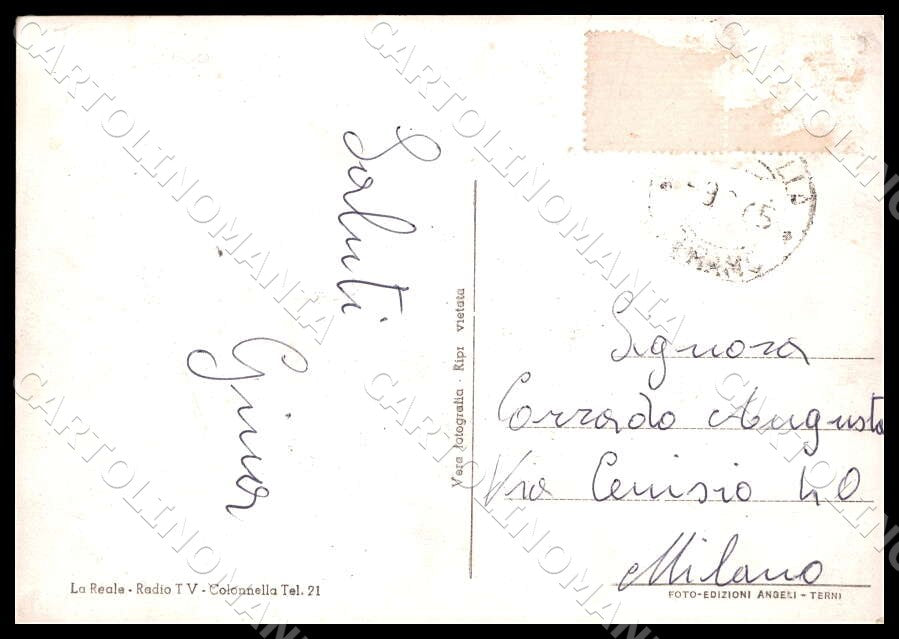 Saluti
Gina
Vera fotografia - Ripr vietata
Signora
Corrado Augusta
Via Cenisio 40
Milano
La Reale - Radio T V - Colonnella Tel. 21
FOTO-EDIZIONI ANGELI - TERNI
CARTOLINOMANIA
CARTOLINOMANIA
CARTOLINOMANIA
CARTOLINOMANIA
CARTOLINOMANIA
CARTOLINOMANIA